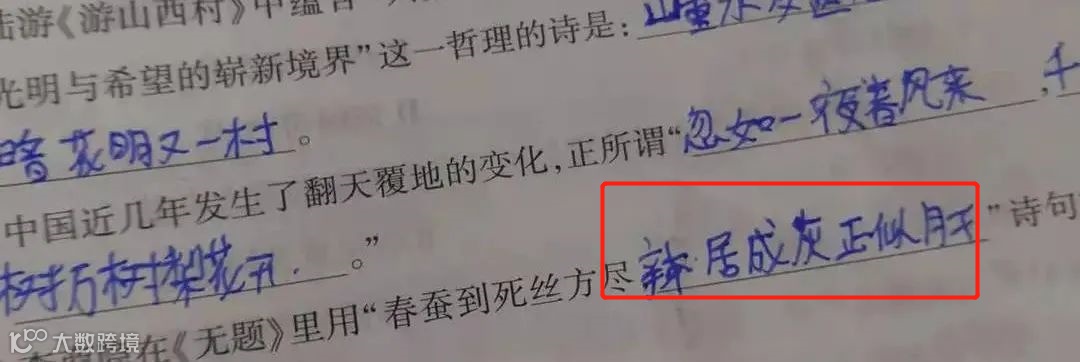 陆游《游山西村》中蕴含
光明与希望的崭新境界”这一哲理的诗是：山重水复疑
暗花明又一村。
中国近几年发生了翻天覆地的变化，正所谓“忽如一夜春风来，千
树万树梨花开。”
在《无题》里用“春蚕到死丝方尽 居成灰正似月干”诗句
大数跨境